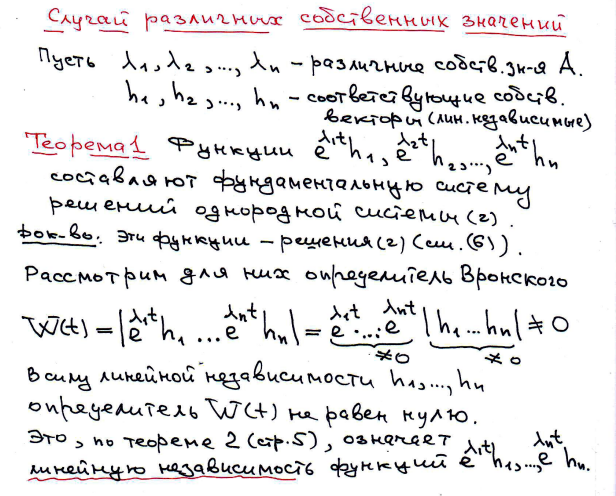 Случай различных собственных значений
Пусть λ₁, λ₂, ..., λₙ – различные собств. зн-я A.
h₁, h₂, ..., hₙ – соответствующие собств.
векторы (лин. независимые)
Теорема 1 Функции e^{λ₁t}h₁, e^{λ₂t}h₂, ..., e^{λₙt}hₙ
составляют фундаментальную систему
решений однородной системы (2).
Док-во: Эти функции – решения (2) (см. (6)).
Рассмотрим для них определитель Вронского
W(t) = |e^{λ₁t}h₁ ... e^{λₙt}hₙ| = e^{λ₁t}·...·e^{λₙt} |h₁ ... hₙ| ≠ 0
≠0 ≠0
В силу линейной независимости h₁, ..., hₙ
определитель W(t) не равен нулю.
Это, по теореме 2 (стр. 5), означает
линейную независимость функций e^{λ₁t}h₁, ..., e^{λₙt}hₙ.